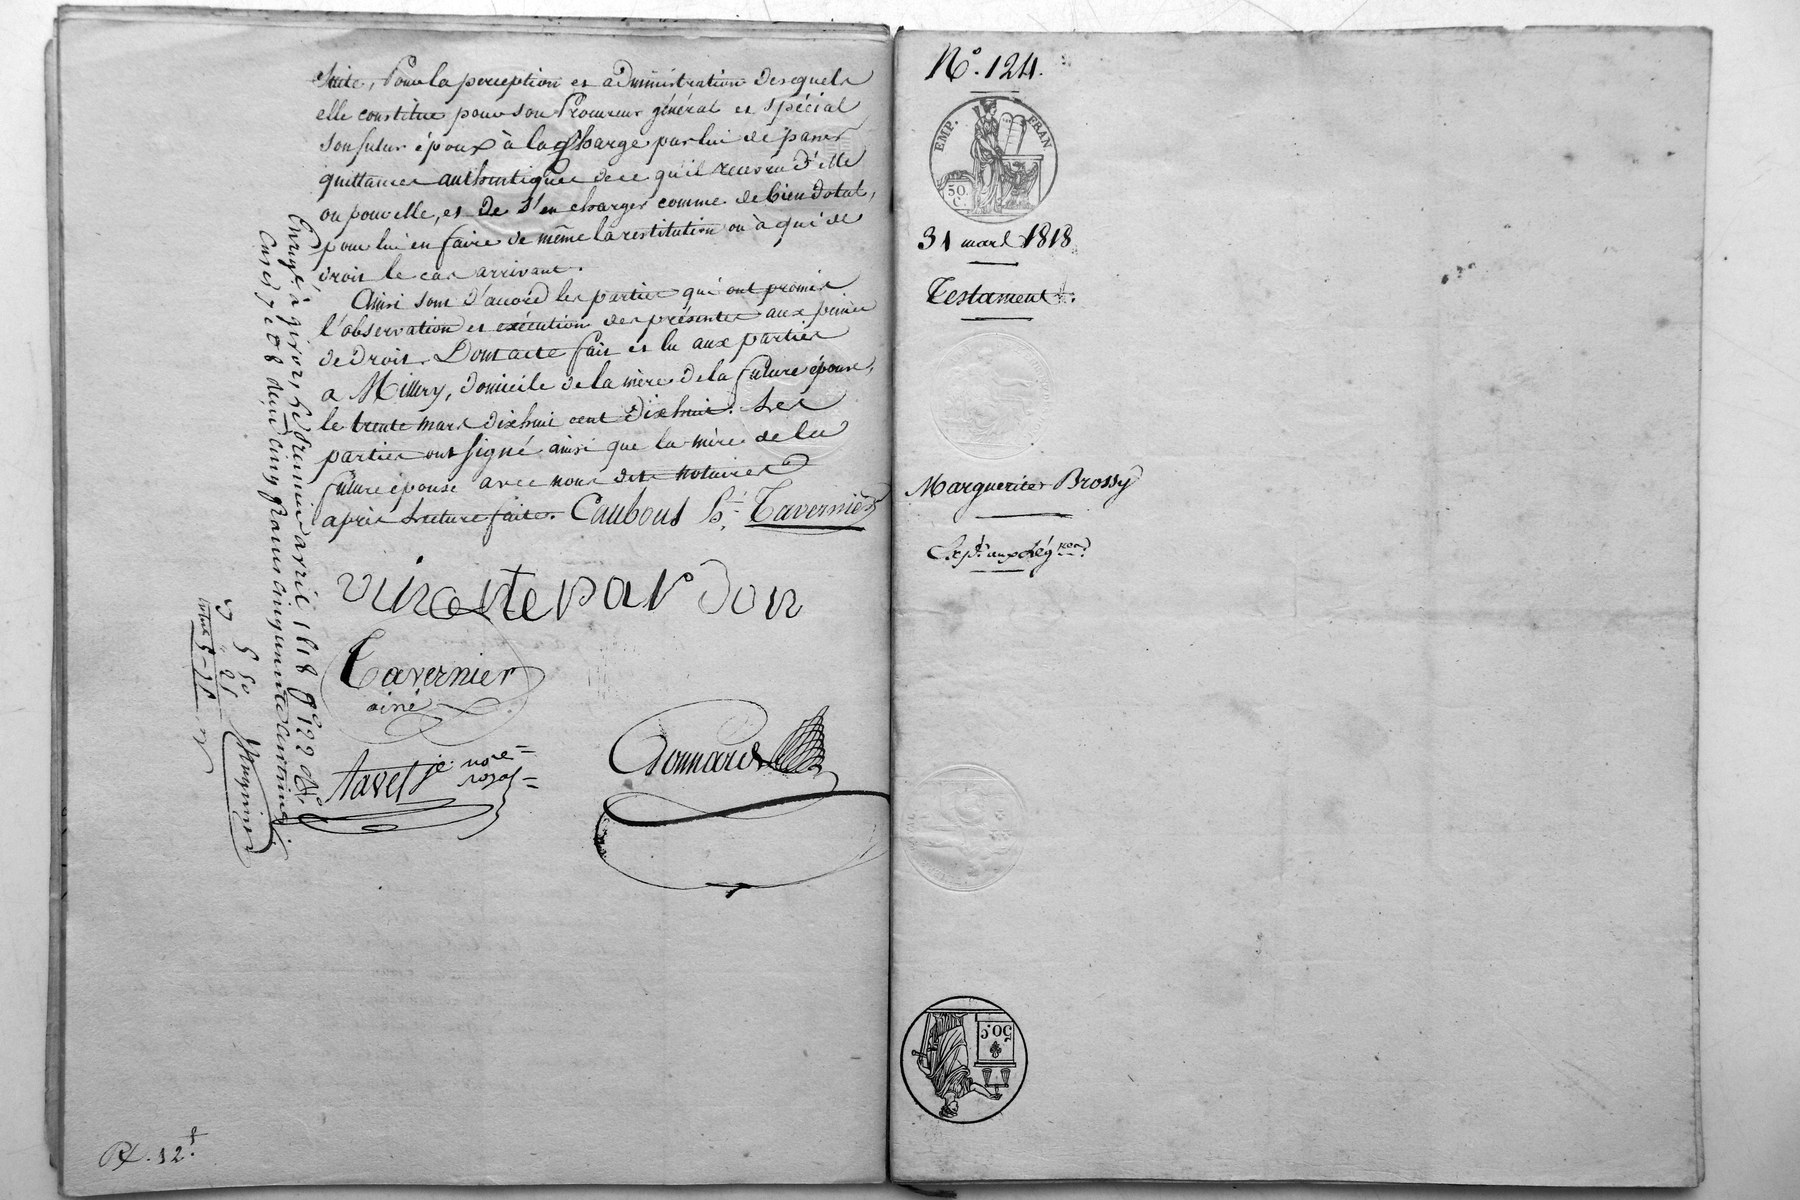 suite, Pour la perception et administration desquels
elle constitue pour son Procureur général et spécial
son futur époux à la charge par lui de passer
quittances authentiques de ce qu'il recevra d'elle
ou pour elle, et de s'en charger comme de bien dotal,
pour lui en faire de même la restitution ou à qui de
droit le cas arrivant.
Ainsi sont d'accord les parties qui ont promis
l'observation et exécution des présentes aux peines
de droit. Dont acte fait et lu aux parties
a Millery, domicile de la mère de la future épouse,
le trente mars dixhuit cent dixhuit. Les
parties ont signé ainsi que la mère de la
future épouse avec nous dits notaires
après lecture faite. Caubous Bt. Tavernier
vincente pardon
Tavernier
ainé
Tavel je. nore
royal
Donnard
Enregt. à givor, le premier avril 1818 fo. 122 Ro.
Cases 7 et 8 Reçu cinq francs cinquante centimes
5 50
Rx. 12f.
No. 124.
EMP. FRAN
50
C.
31 mars 1818
Testament
Marguerite Brossy
Expt. aux Légres.
50. c